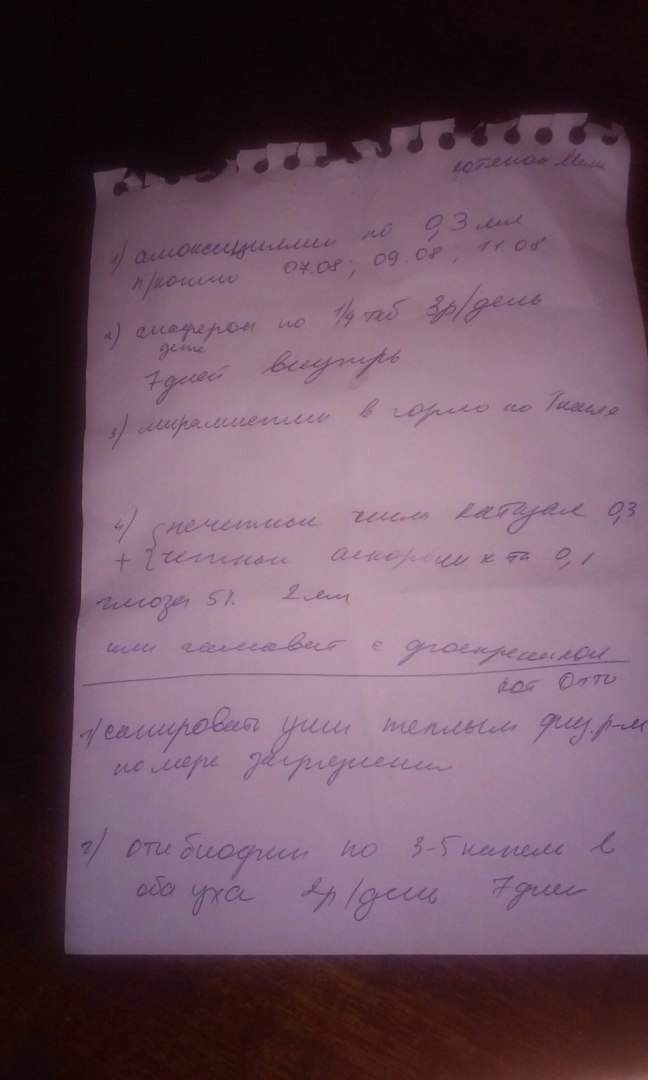 котенок
1) амоксициллин по 0,3 мл
п/кожно 07.08; 09.08, 11.08
2) анаферон по 1/4 таб 3р/день
детс
7 дней внутрь
3) мирамистин в горло по 1 капле
4) { нечетные числа катозал 0,3
+ { четные аскорбин к та 0,1
глюкоза 5% 2 мл
или гамавит с
кот Отто
1) санировать уши теплым физ.р-м
по мере загрязнения
2) отибиовин по 3-5 капель в
оба уха 2р/день 7 дней